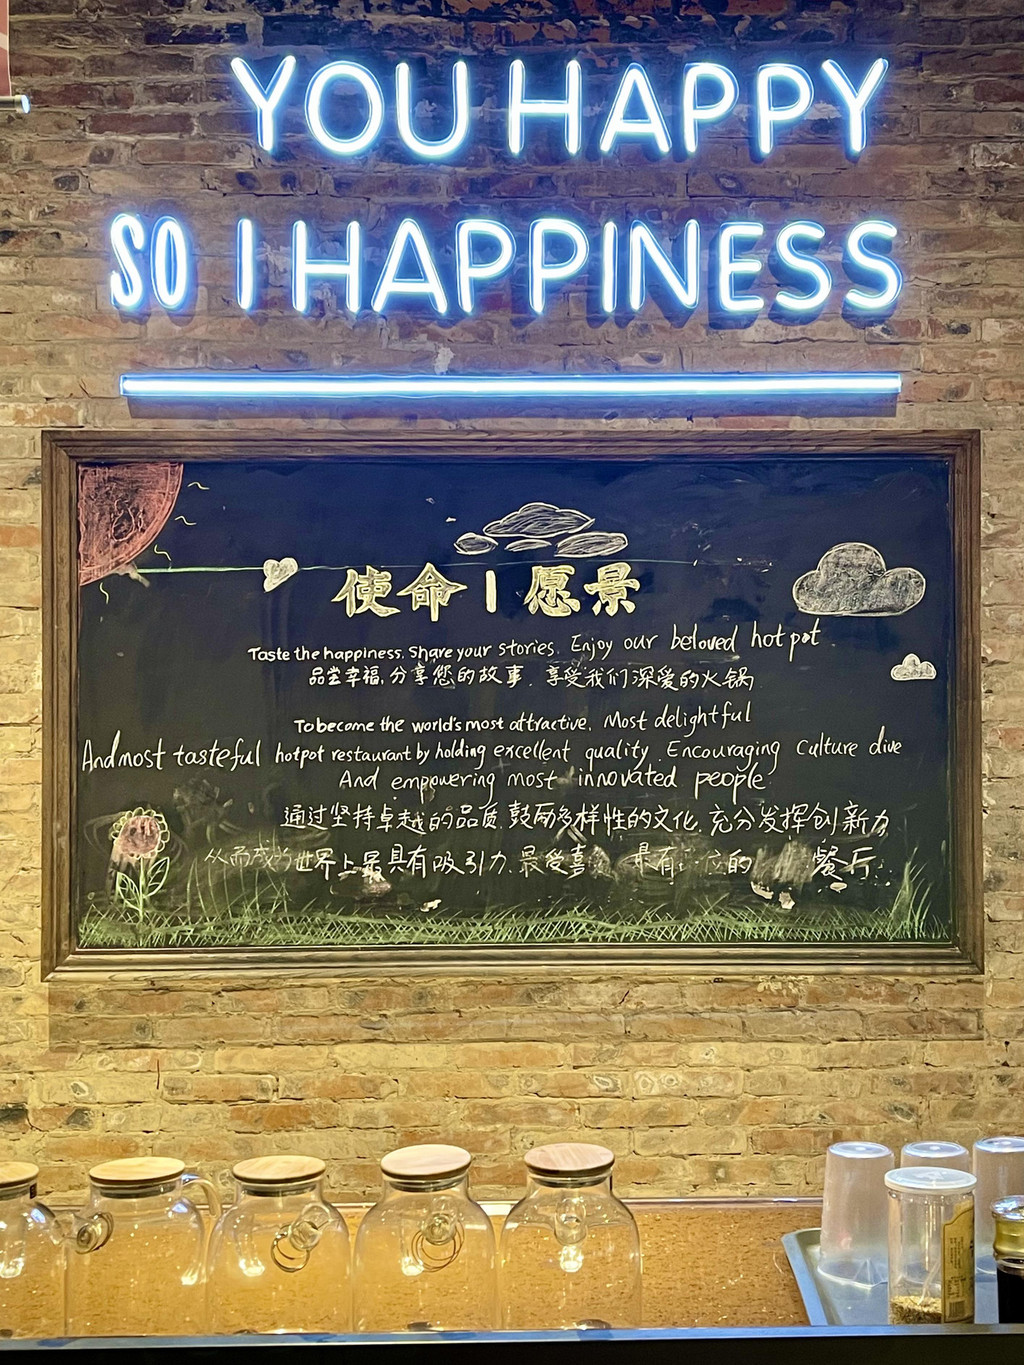 YOU HAPPY
SO I HAPPINESS
使命 | 愿景
Taste the happiness. Share your stories. Enjoy our beloved hot pot
品尝幸福, 分享您的故事. 享受我们深爱的火锅
To become the world's most attractive. Most delightful
And most tasteful hotpot restaurant by holding excellent quality. Encouraging culture dive
And empowering most innovated people
通过坚持卓越的品质. 鼓励多样性的文化. 充分发挥创新力
从而成为世界上最具有吸引力. 最受喜 最有 位的 餐厅